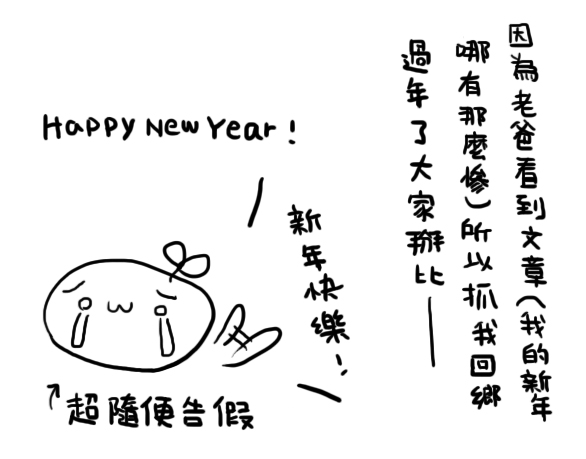 因為老爸看到文章(我的新年
哪有那麼慘)所以抓我回鄉
過年了大家掰比——
Happy New Year!
新年快樂!
超隨便告假